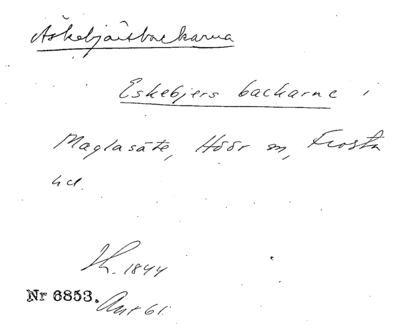 Äskebjärsbackarna
Eskebjers backarne i
Maglasäte, Höör sn, Frosta
hd.
1844
Nr 6853. Ant 61.